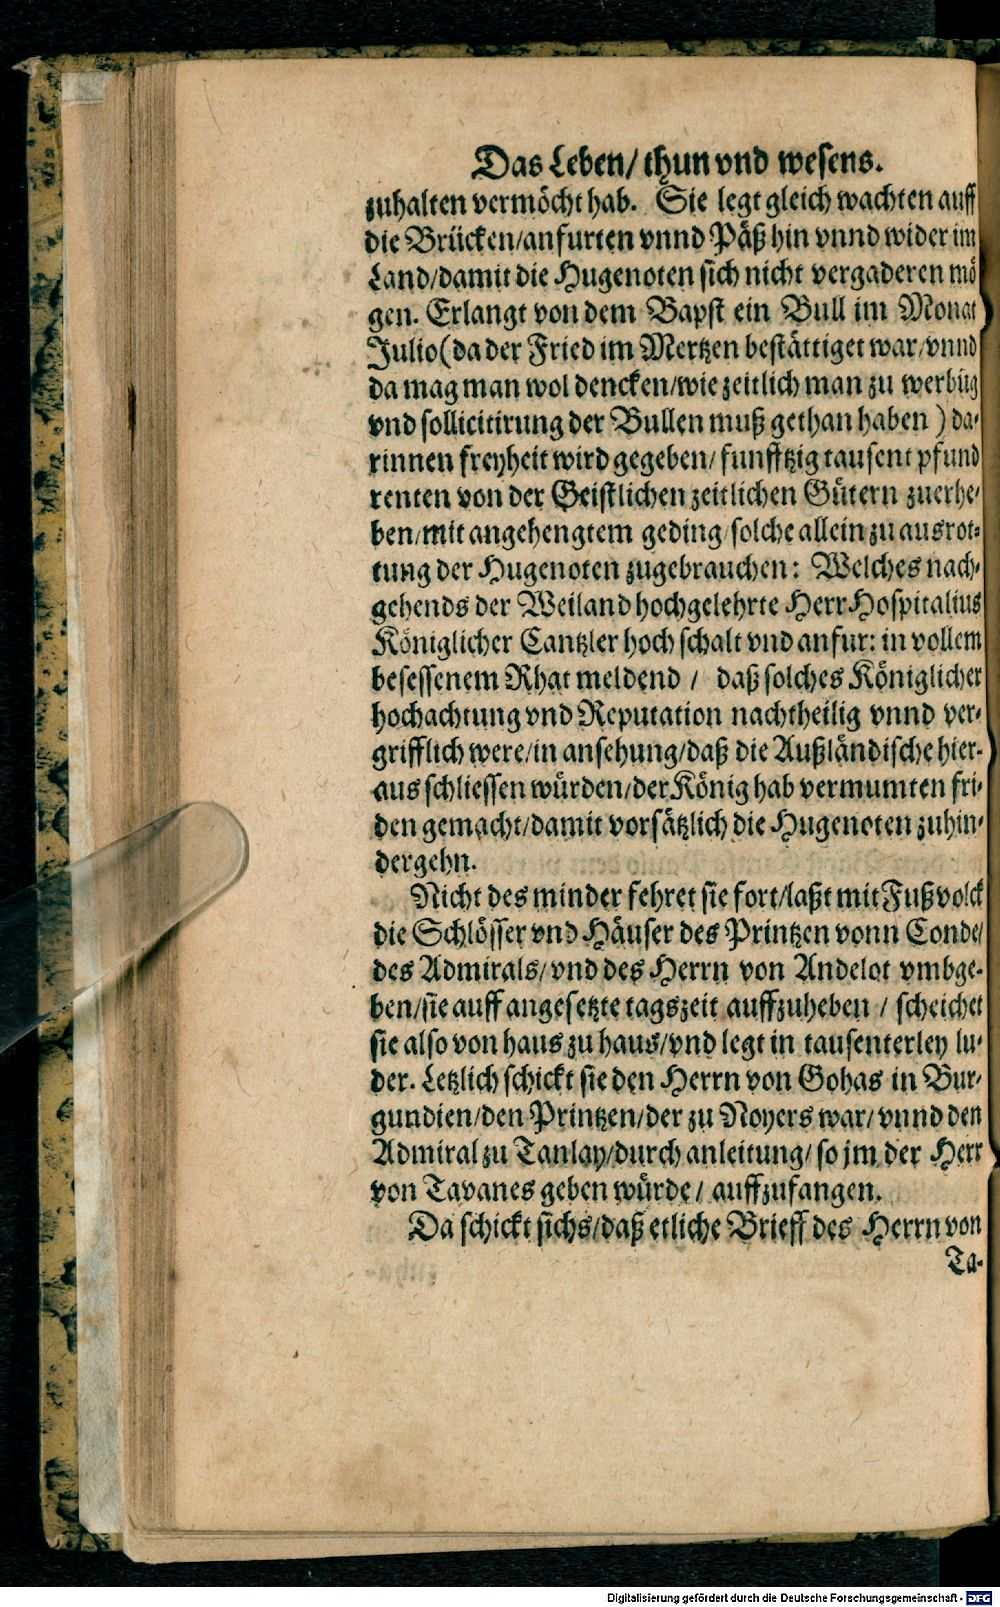 Das Leben/ thun vnd wesens.
zuhalten vermöcht hab. Sie legt gleich wachten auff
die Brücken/anfurten vnnd Päß hin vnnd wider im
Land/damit die Hugenoten sich nicht vergaderen mö
gen. Erlangt von dem Bapst ein Bull im Monat
Julio(da der Fried im Mertzen bestättiget war/vnnd
da mag man wol dencken/wie zeitlich man zu werbüg
vnd sollicitirung der Bullen muß gethan haben ) da-
rinnen freyheit wird gegeben/ funfftzig tausent pfund
renten von der Geistlichen zeitlichen Gütern zuerhe-
ben/mit angehengtem geding/solche allein zu ausrot-
tung der Hugenoten zugebrauchen: Welches nach-
gehends der Weiland hochgelehrte Herr Hospitalius
Königlicher Cantzler hoch schalt vnd anfur: in vollem
besessenem Rhat meldend / daß solches Königlicher
hochachtung vnd Reputation nachtheilig vnnd ver-
grifflich were/in ansehung/daß die Außländische hier-
aus schliessen würden/der König hab vermumten fri-
den gemacht/damit vorsätzlich die Hugenoten zuhin-
dergehn.
Nicht des minder fehret sie fort/laßt mit Fußvolck
die Schlösser vnd Häuser des Printzen vonn Conde/
des Admirals/vnd des Herrn von Andelot vmbge-
ben/sie auff angesetzte tagszeit auffzuheben / scheichet
sie also von haus zu haus/vnd legt in tausenterley lu-
der. Letzlich schickt sie den Herrn von Gohas in Bur-
gundien/den Printzen/der zu Noyers war/vnnd den
Admiral zu Tanlay/durch anleitung/ so jm der Herr
von Tavanes geben würde/ auffzufangen.
Da schickt sichs/daß etliche Brieff des Herrn von
Ta-
Digitalisierung gefördert durch die Deutsche Forschungsgemeinschaft - DFG